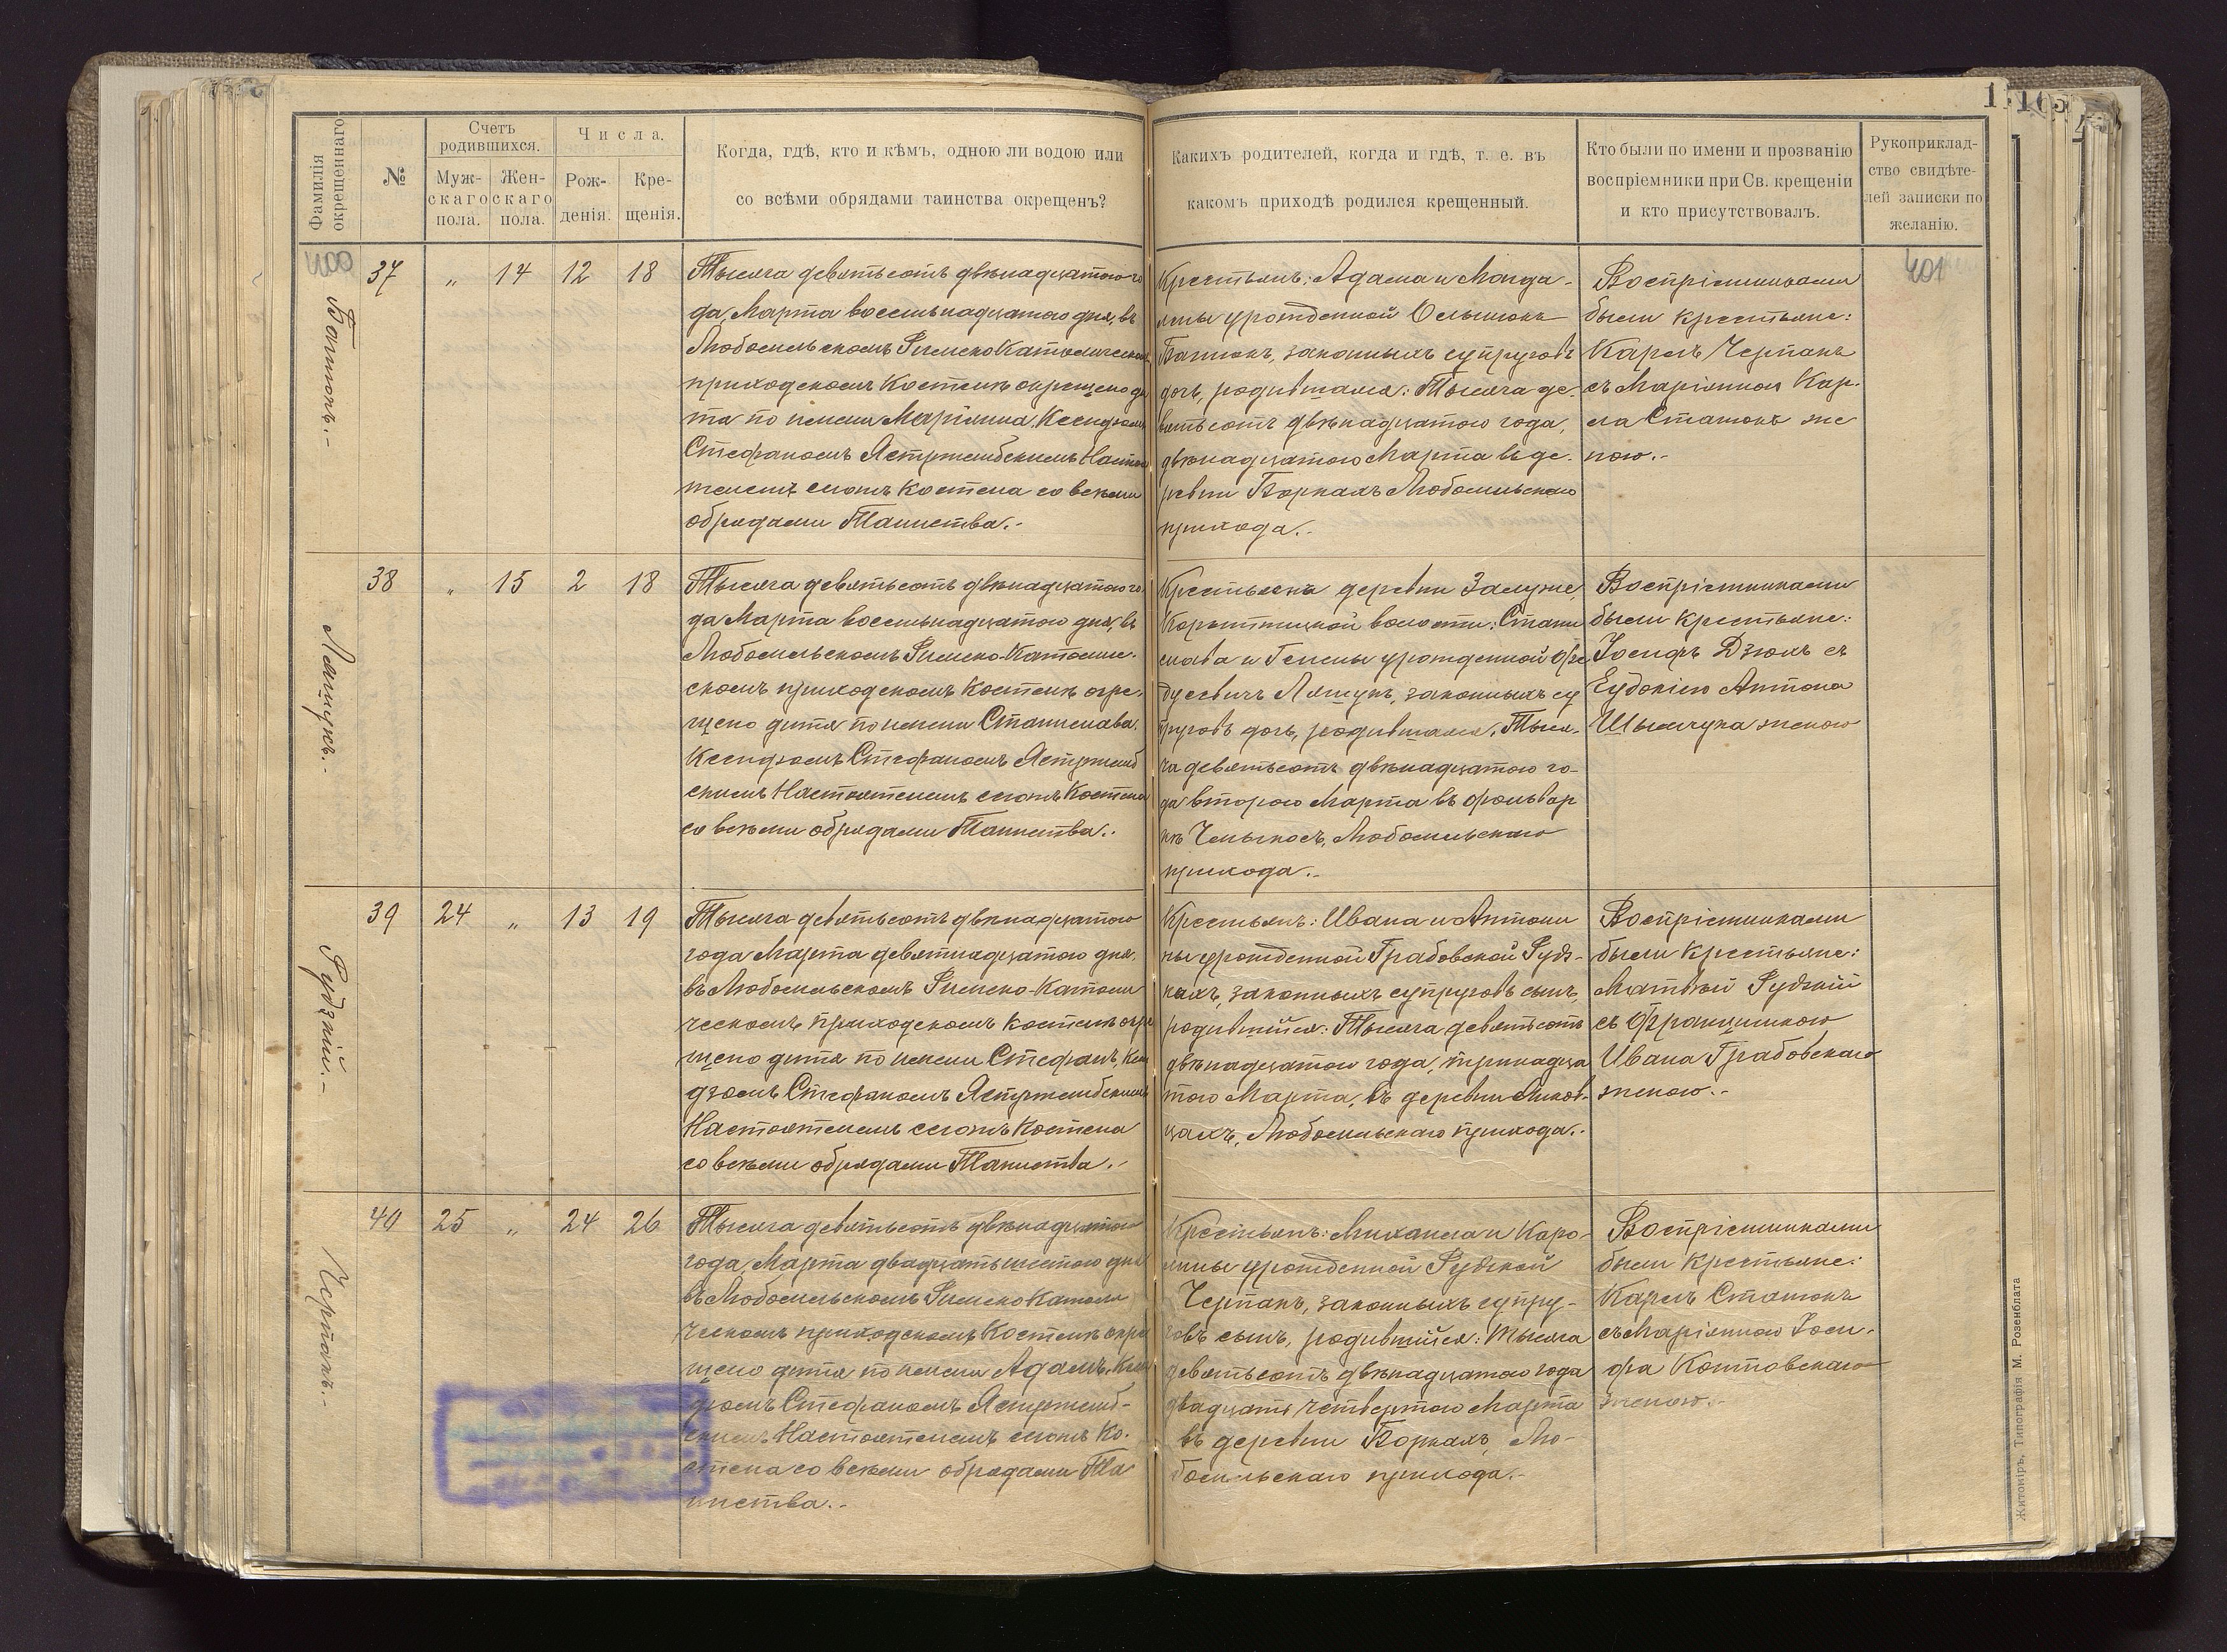 Фамилія окрещеннаго.
№
Счетъ родившихся.
Мужскаго пола.
Женскаго пола.
Числа.
Рожденія.
Крещенія.
Когда, гдѣ, кто и кѣмъ, одною ли водою или
со всѣми обрядами таинства окрещенъ?
Какихъ родителей, когда и гдѣ, т. е. въ
какомъ приходѣ родился крещенный.
Кто были по имени и прозванію
воспріемники при Св. крещеніи
и кто присутствовалъ.
Рукоприклад-
ство свидѣте-
лей записки по
желанію.
400
37 " 14 12 18
Тысяча девятьсотъ двѣнадцатого го
да, Марта восемьнадцатого дня, въ
Любомльскомъ Римско Католическомъ
приходскомъ Костелѣ окрещено ди
тя по имени Маріанна, Ксендзомъ
Стефаномъ Ястржембскимъ Настоя
телемъ сегожъ Костела со всѣми
обрядами Таинства.-
Крестьянъ: Адама и Магда-
лены урожденной Ольшюкъ
законныхъ супруговъ
дочь, родившаяся: Тысяча де-
вятьсотъ двѣнадцатого года,
двѣнадцатого Марта въ де-
ревни Боркахъ Любомльскаго
прихода.-
Воспріемниками
были крестьяне:
Кароль Черпакъ
съ Маріанною Кар-
ла Сташюкъ же
ною.-
401
38 " 15 2 18
Ляшукъ.-
Тысяча девятьсотъ двѣнадцатого го
да Марта восемьнадцатого дня, въ
Любомльскомъ Римско-Католиче-
скомъ приходскомъ Костелѣ окре-
щено дитя по имени Станислава,
Ксендзомъ Стефаномъ Ястржемб
скимъ Настоятелемъ сегожъ Костела
со всѣми обрядами Таинства.-
Крестьянъ деревни Залужье,
волости: Стани
слава и Гелены урожденной
Ляшукъ, законныхъ су
пруговъ дочь, родившаяся, Тыся-
ча девятьсотъ двѣнадцатого го-
да второго Марта въ фольвар
кѣ Любомльскаго
прихода.-
Воспріемниками
были крестьяне:
Іосифъ Дзюкъ съ
Евдокіею Антона
женою
39 24 " 13 19
Рудзкій.-
Тысяча девятьсотъ двѣнадцатого
года Марта девятнадцатого дня,
въ Любомльскомъ Римско-Католи
ческомъ приходскомъ Костелѣ окре
щено дитя по имени Стефанъ, Ксен
дзомъ Стефаномъ Ястржембскимъ
Настоятелемъ сегожъ Костела
со всѣми обрядами Таинства.-
Крестьянъ: Ивана и Антони
ны урожденной Грабовской Рудз-
кихъ, законныхъ супруговъ сынъ,
родившійся: Тысяча девятьсотъ
двѣнадцатого года, тринадца
того Марта, въ деревни
цахъ, Любомльскаго прихода.-
Воспріемниками
были крестьяне:
Матвѣй Рудзкій
съ Францишкою
Ивана Грабовскаго
женою.-
40 25 " 24 26
Черпакъ.-
Тысяча девятьсотъ двѣнадцатого
года, Марта двадцать шестого дня
въ Любомльскомъ Римско Католи
ческомъ приходскомъ Костелѣ окре
щено дитя по имени Адамъ, Ксен
дзомъ Стефаномъ Ястржемб-
скимъ Настоятелемъ сегожъ Ко-
стела со всѣми обрядами Та
инства.-
Крестьянъ: Михаила и Каро-
лины урожденной Рудзкой
Черпакъ, законныхъ супру-
говъ сынъ, родившійся: Тысяча
девятьсотъ двѣнадцатого года
двадцать четвертого Марта
въ деревни Боркахъ, Лю-
бомльскаго прихода.-
Воспріемниками
были крестьяне:
Карлъ Сташюкъ
съ Маріанною Іоси-
фа Котовскаго
женою.-
Житоміръ, Типографія М. Розенблата